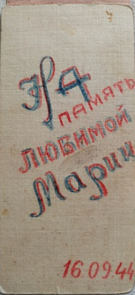 На
ПАМЯТЬ
ЛЮБИМОЙ
Марии
16 09 44